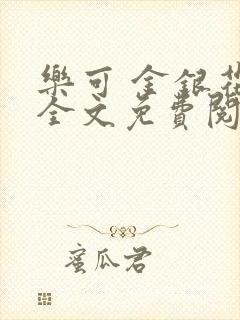 樂可 金銀花
全文免費閱
蜜瓜君